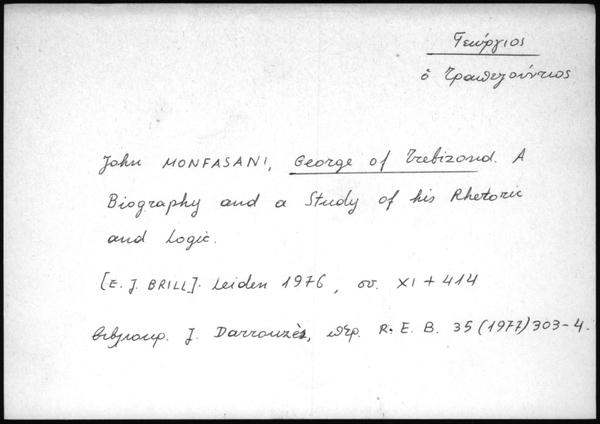 Γεώργιος
ὁ Τραπεζούντιος
John MONFASANI, George of Trebizond. A
Biography and a Study of his Rhetoric
and Logic.
[E. J. BRILL]. Leiden 1976, σσ. XI + 414
βιβλιοκρ. J. Darrouzès, περ. R. E. B. 35 (1977) 303-4.